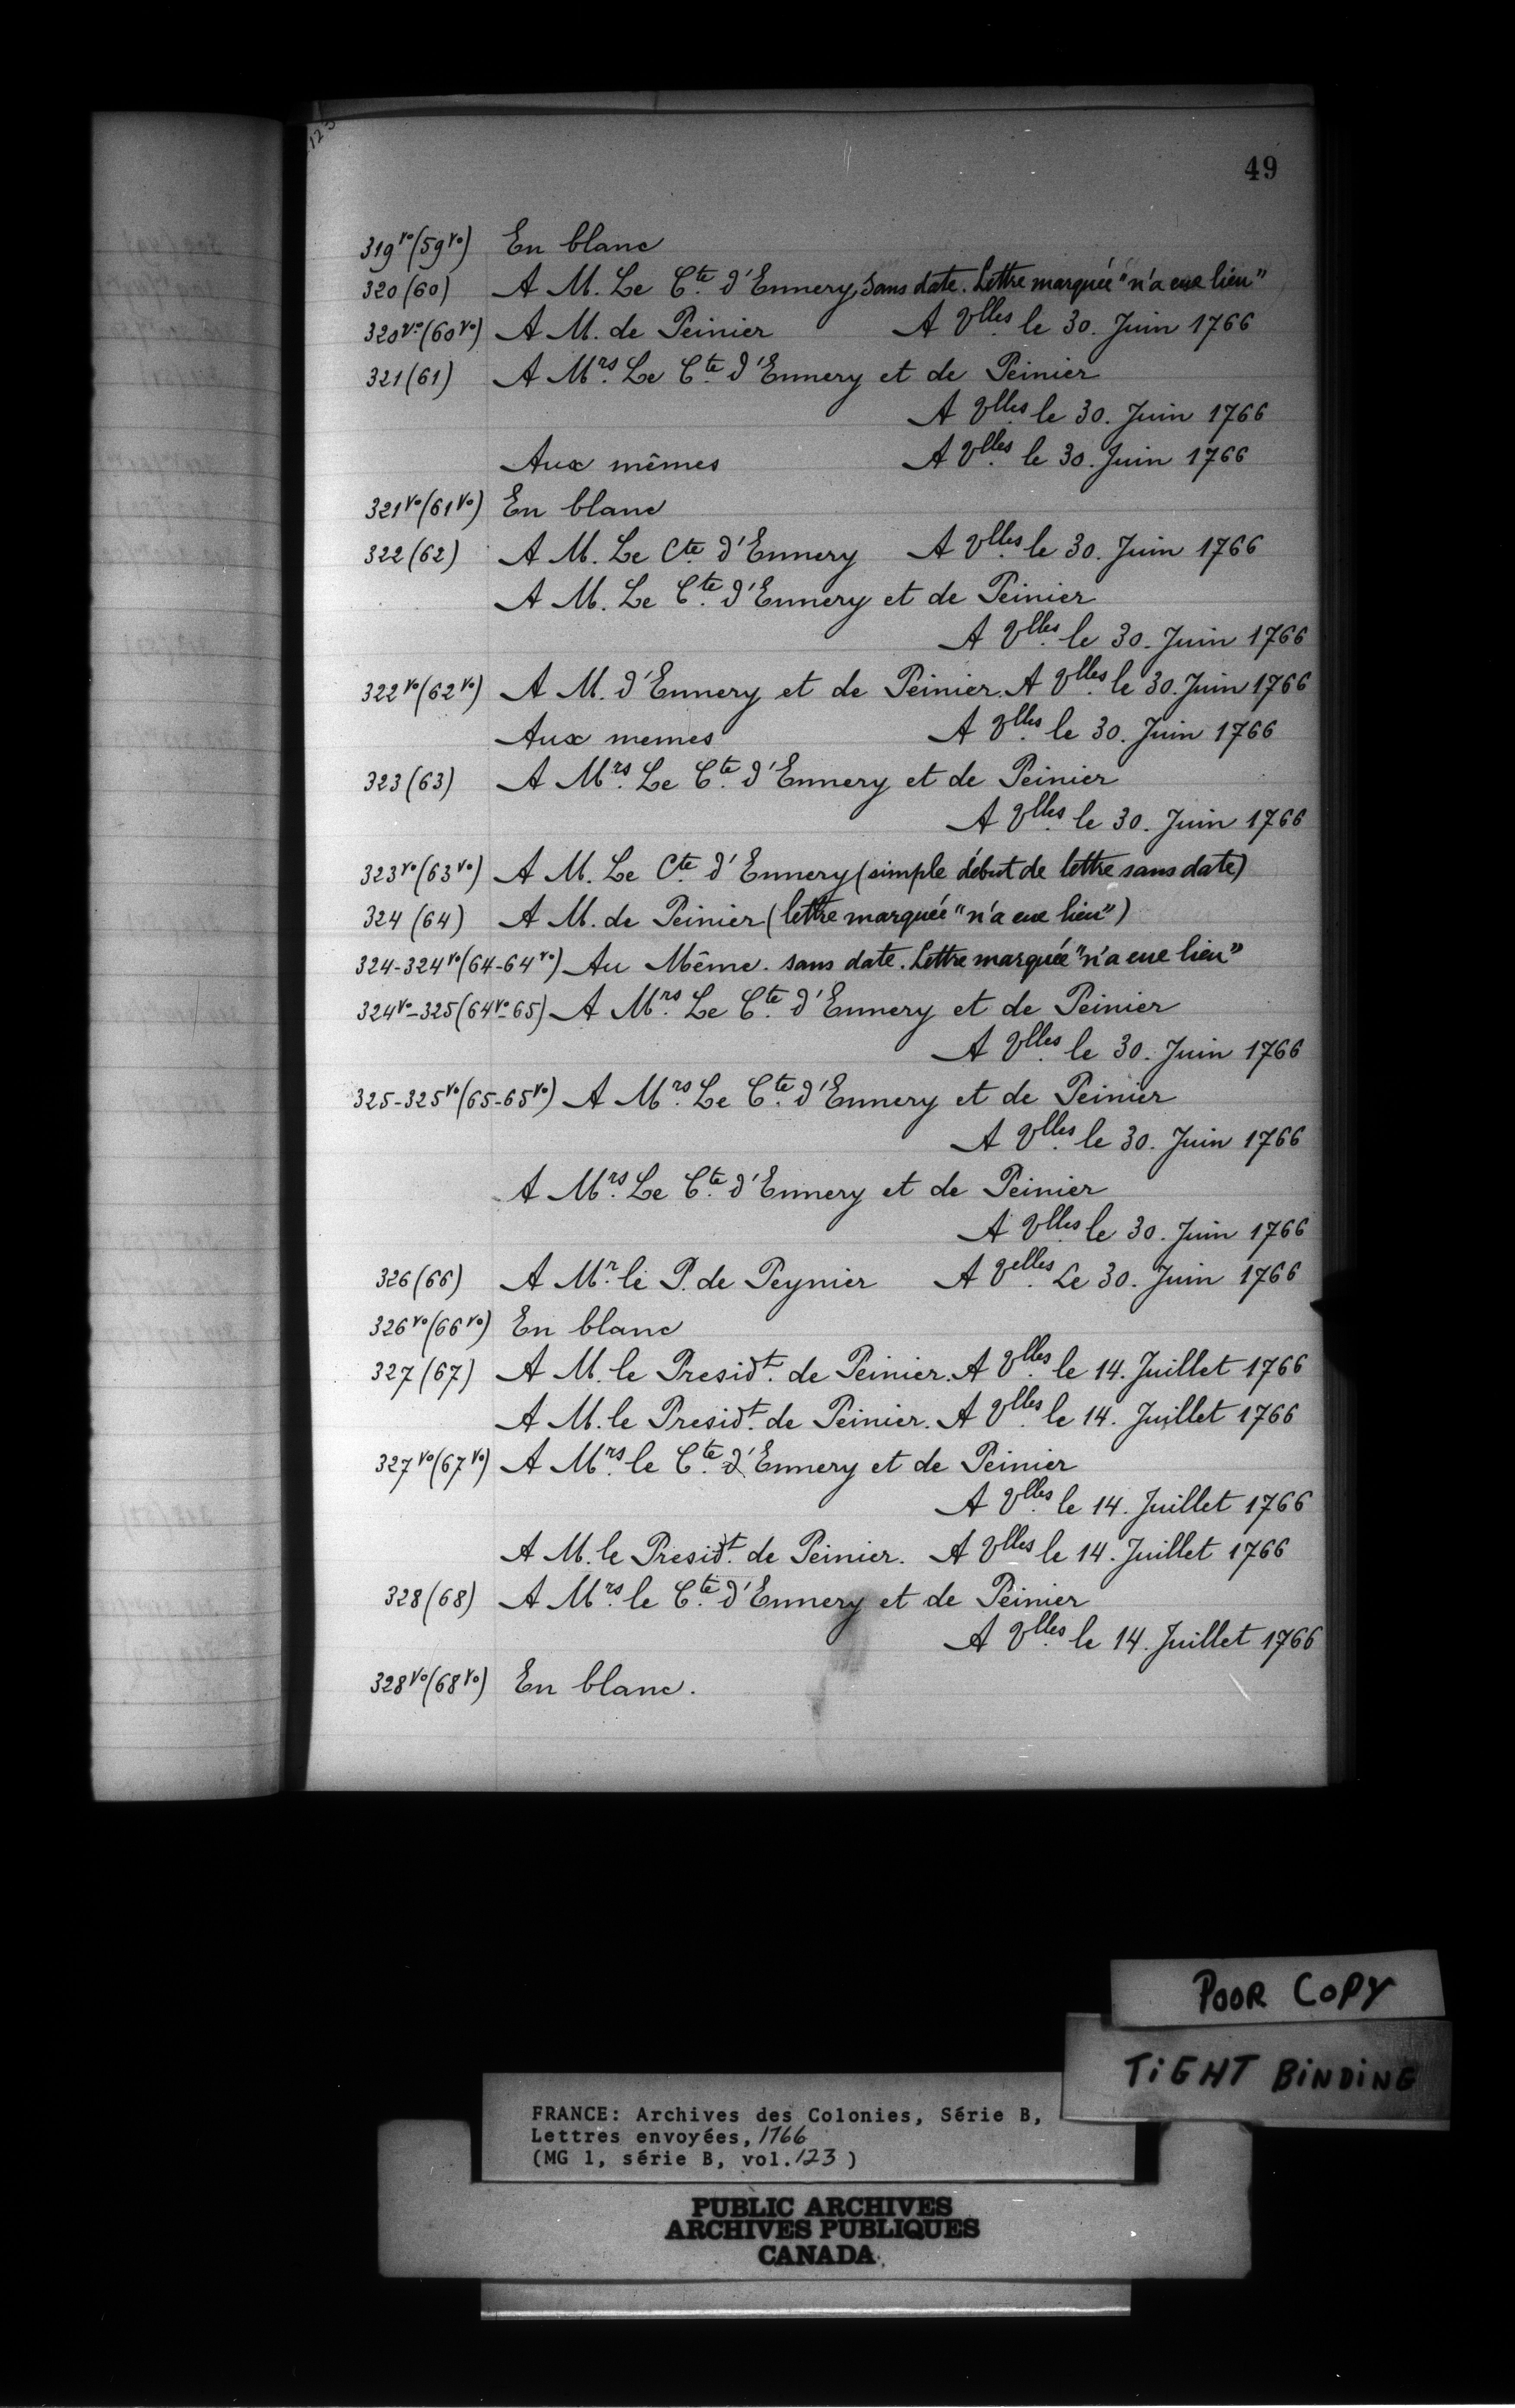 123
49
319vo(59vo) En blanc
320(60) A M. Le Cte. d'Ennery, sans date. Lettre marquée "n'a eue lieu"
320vo(60vo) A M. de Peinier A Vlles. le 30. Juin 1766
321(61) A Mrs. Le Cte. d'Ennery et de Peinier
A Vlles. le 30. Juin 1766
Aux mêmes A Vlles. le 30. Juin 1766
321vo(61vo) En blanc
322(62) A M. Le Cte. d'Ennery A Vlles. le 30. Juin 1766
A M. Le Cte. d'Ennery et de Peinier
A Vlles. le 30. Juin 1766
322vo(62vo) A M. d'Ennery et de Peinier. A Vlles. le 30. Juin 1766
Aux memes A Vlles. le 30. Juin 1766
323(63) A Mrs. Le Cte. d'Ennery et de Peinier
A Vlles. le 30. Juin 1766
323vo(63vo) A M. Le Cte. d'Ennery (simple début de lettre sans date)
324(64) A M. de Peinier (lettre marquée "n'a eue lieu")
324-324vo(64-64vo) Au Même. sans date. Lettre marquée "n'a eue lieu"
324vo-325(64vo-65) A Mrs. Le Cte. d'Ennery et de Peinier
A Vlles. le 30. Juin 1766
325-325vo(65-65vo) A Mrs. Le Cte. d'Ennery et de Peinier
A Vlles. le 30. Juin 1766
A Mrs. Le Cte. d'Ennery et de Peinier
A Vlles. le 30. Juin 1766
326(66) A Mr. le P. de Peynier A Velles. Le 30. Juin 1766
326vo(66vo) En blanc
327(67) A M. le Presidt. de Peinier. A Vlles. le 14. Juillet 1766
A M. le Presidt. de Peinier. A Vlles. le 14. Juillet 1766
327vo(67vo) A Mrs. le Cte. d'Ennery et de Peinier
A Vlles. le 14. Juillet 1766
A M. le Presidt. de Peinier. A Vlles. le 14. Juillet 1766
328(68) A Mrs. le Cte. d'Ennery et de Peinier
A Vlles. le 14. Juillet 1766
328vo(68vo) En blanc.
POOR COPY
TIGHT BINDING
FRANCE: Archives des Colonies, Série B,
Lettres envoyées, 1766
(MG 1, série B, vol. 123)
PUBLIC ARCHIVES
ARCHIVES PUBLIQUES
CANADA